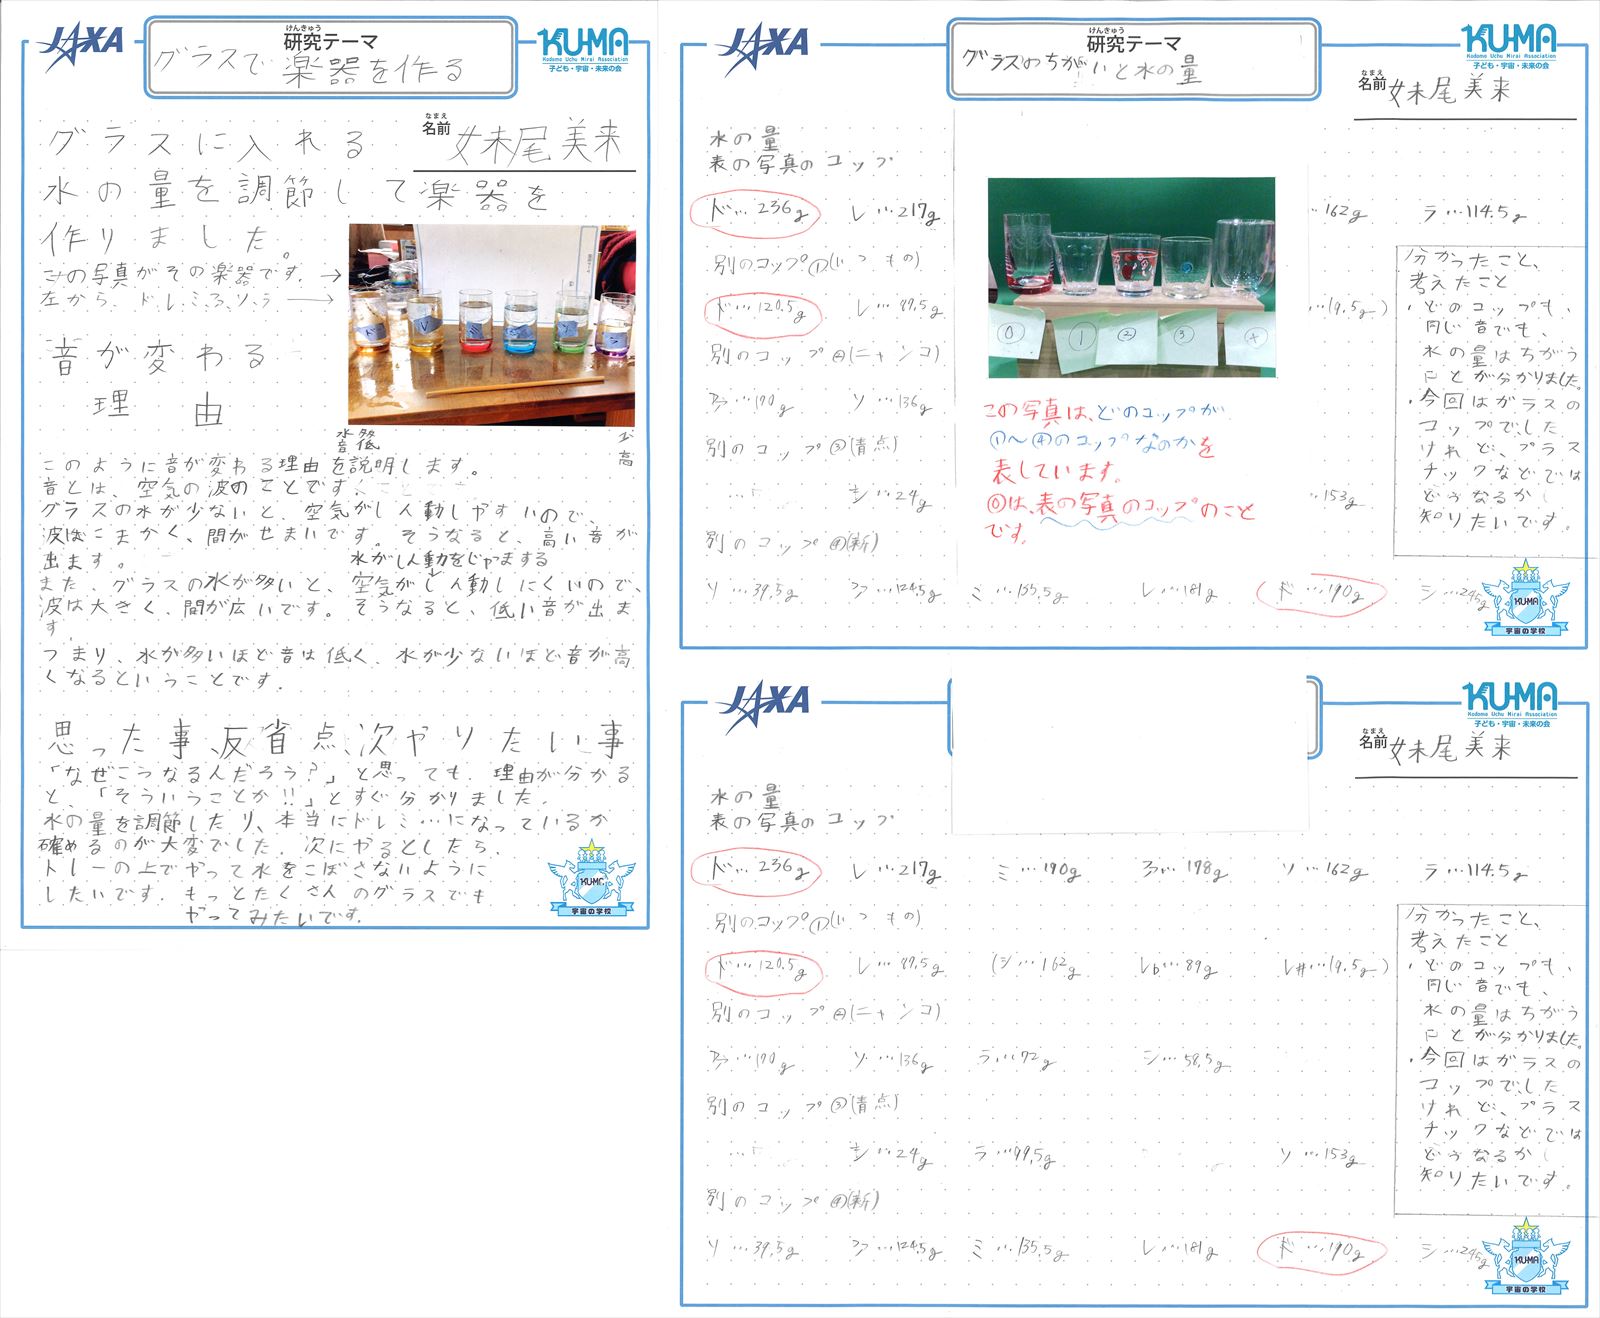 JAXA
けんきゅう
研究テーマ
グラスで楽器を作る
KU-MA
Kodomo Uchu Mirai Association
子ども・宇宙・未来の会
なまえ
名前 妹尾美来
グラスに入れる
水の量を調節して楽器を
作りました。
この写真がその楽器です。→
左から、ド、レ、ミ、ファ、ソ、ラ→
音が変わる
理由
水多
音低
少
高
このように音が変わる理由を説明します。
音とは、空気の波のことです。
グラスの水が少ないと、空気がしん動しやすいので、
波はこまかく、間がせまいです。そうなると、高い音が
出ます。
水がしん動をじゃまする
また、グラスの水が多いと、空気がしん動しにくいので、
波は大きく、間が広いです。そうなると、低い音が出ま
す。
つまり、水が多いほど音は低く、水が少ないほど音が高
くなるということです。
思った事、反省点、次やりたい事
「なぜこうなるんだろう?」と思っても、理由が分かる
と、「そういうことか!!」とすぐ分かりました。
水の量を調節したり、本当にドレミ…になっているか
確めるのが大変でした。次にやるとしたら、
トレーの上でやって水をこぼさないように
したいです。もっとたくさんのグラスでも
やってみたいです。
KU-MA
宇宙の学校
JAXA
けんきゅう
研究テーマ
グラスのちがいと水の量
KU-MA
Kodomo Uchu Mirai Association
子ども・宇宙・未来の会
なまえ
名前 妹尾美来
水の量
表の写真のコップ
ド…236g レ…217g …162g ラ…114.5g
別のコップ①(いつもの)
ド…120.5g レ…87.5g …(9.5g)
別のコップ②(ニャンコ)
ファ…170g ソ…136g
別のコップ③(青点)
シ…24g …153g
別のコップ④(新)
ソ…39.5g ファ…124.5g ミ…135.5g レ…181g ド…190g シ…245g
0 ① ② ③ ④
この写真は、どのコップが
①〜④のコップなのかを
表しています。
⓪は、表の写真のコップのこと
です。
分かったこと、
考えたこと
・どのコップも、
同じ音でも、
水の量はちがう
ことが分かりました。
・今回はガラスの
コップでした
けれど、プラス
チックなどでは
どうなるか
知りたいです。
KU-MA
宇宙の学校
JAXA
KU-MA
Kodomo Uchu Mirai Association
子ども・宇宙・未来の会
なまえ
名前 妹尾美来
水の量
表の写真のコップ
ド…236g レ…217g ミ…190g ファ…178g ソ…162g ラ…114.5g
別のコップ①(いつもの)
ド…120.5g レ…87.5g (シ…162g レb…89g レ#…(9.5g)
別のコップ②(ニャンコ)
ファ…170g ソ…136g ラ…72g シ…58.5g
別のコップ③(青点)
シ…24g ラ…99.5g ソ…153g
別のコップ④(新)
ソ…39.5g ファ…124.5g ミ…135.5g レ…181g ド…190g シ…245g
分かったこと、
考えたこと
・どのコップも、
同じ音でも、
水の量はちがう
ことが分かりました。
・今回はガラスの
コップでした
けれど、プラス
チックなどでは
どうなるか
知りたいです。
KU-MA
宇宙の学校